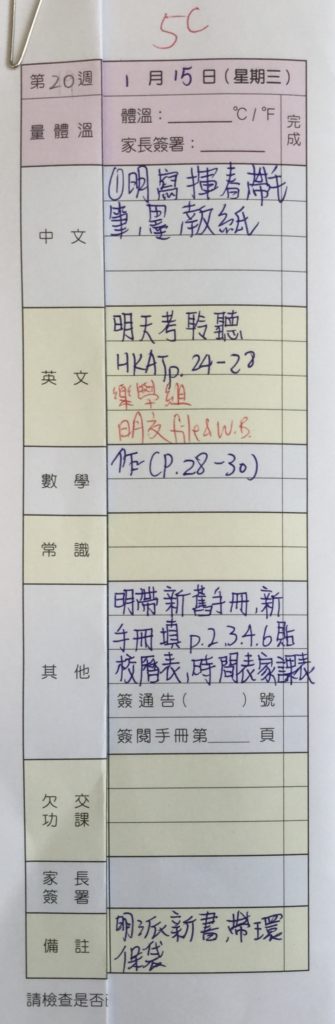 5C
第20週 1月15日(星期三)
量體溫 體溫：______ ℃/℉ 完成
家長簽署：______
中文 ①明寫揮春,帶毛
筆,墨,報紙
英文 明天考聆聽
HKAT p.24-28
樂學組
明交 file & W.B.
數學 作(P.28-30)
常識
其他 明帶新舊手冊,新
手冊填p.2.3.4.6貼
校曆表,時間表家課表
簽通告( )號
簽閱手冊第____頁
欠交功課
家長簽署
備註 明派新書,帶環
保袋
請檢查是否